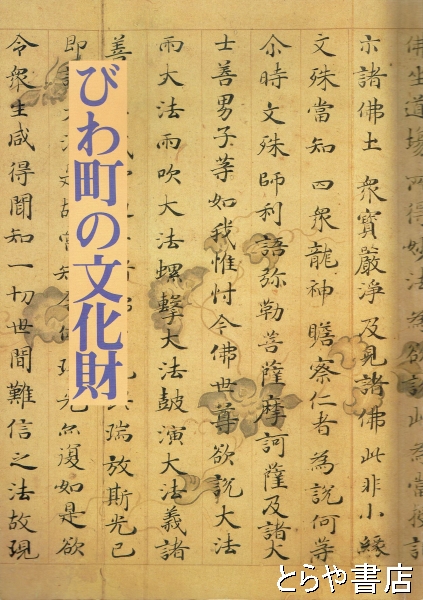 びわ町の文化財
佛坐道場 所得妙法 為欲説此 為當授記
示諸佛土 衆寶嚴淨 及見諸佛 此非小縁
文殊當知 四衆龍神 瞻察仁者 為説何等
尒時文殊師利語弥勒菩薩摩訶薩及諸大
士善男子等如我惟忖今佛世尊欲說大法
雨大法雨吹大法螺擊大法鼓演大法義諸
善 瑞放斯光已
即 光亦復如是欲
令衆生咸得聞知一切世間難信之法故現
とらや書店